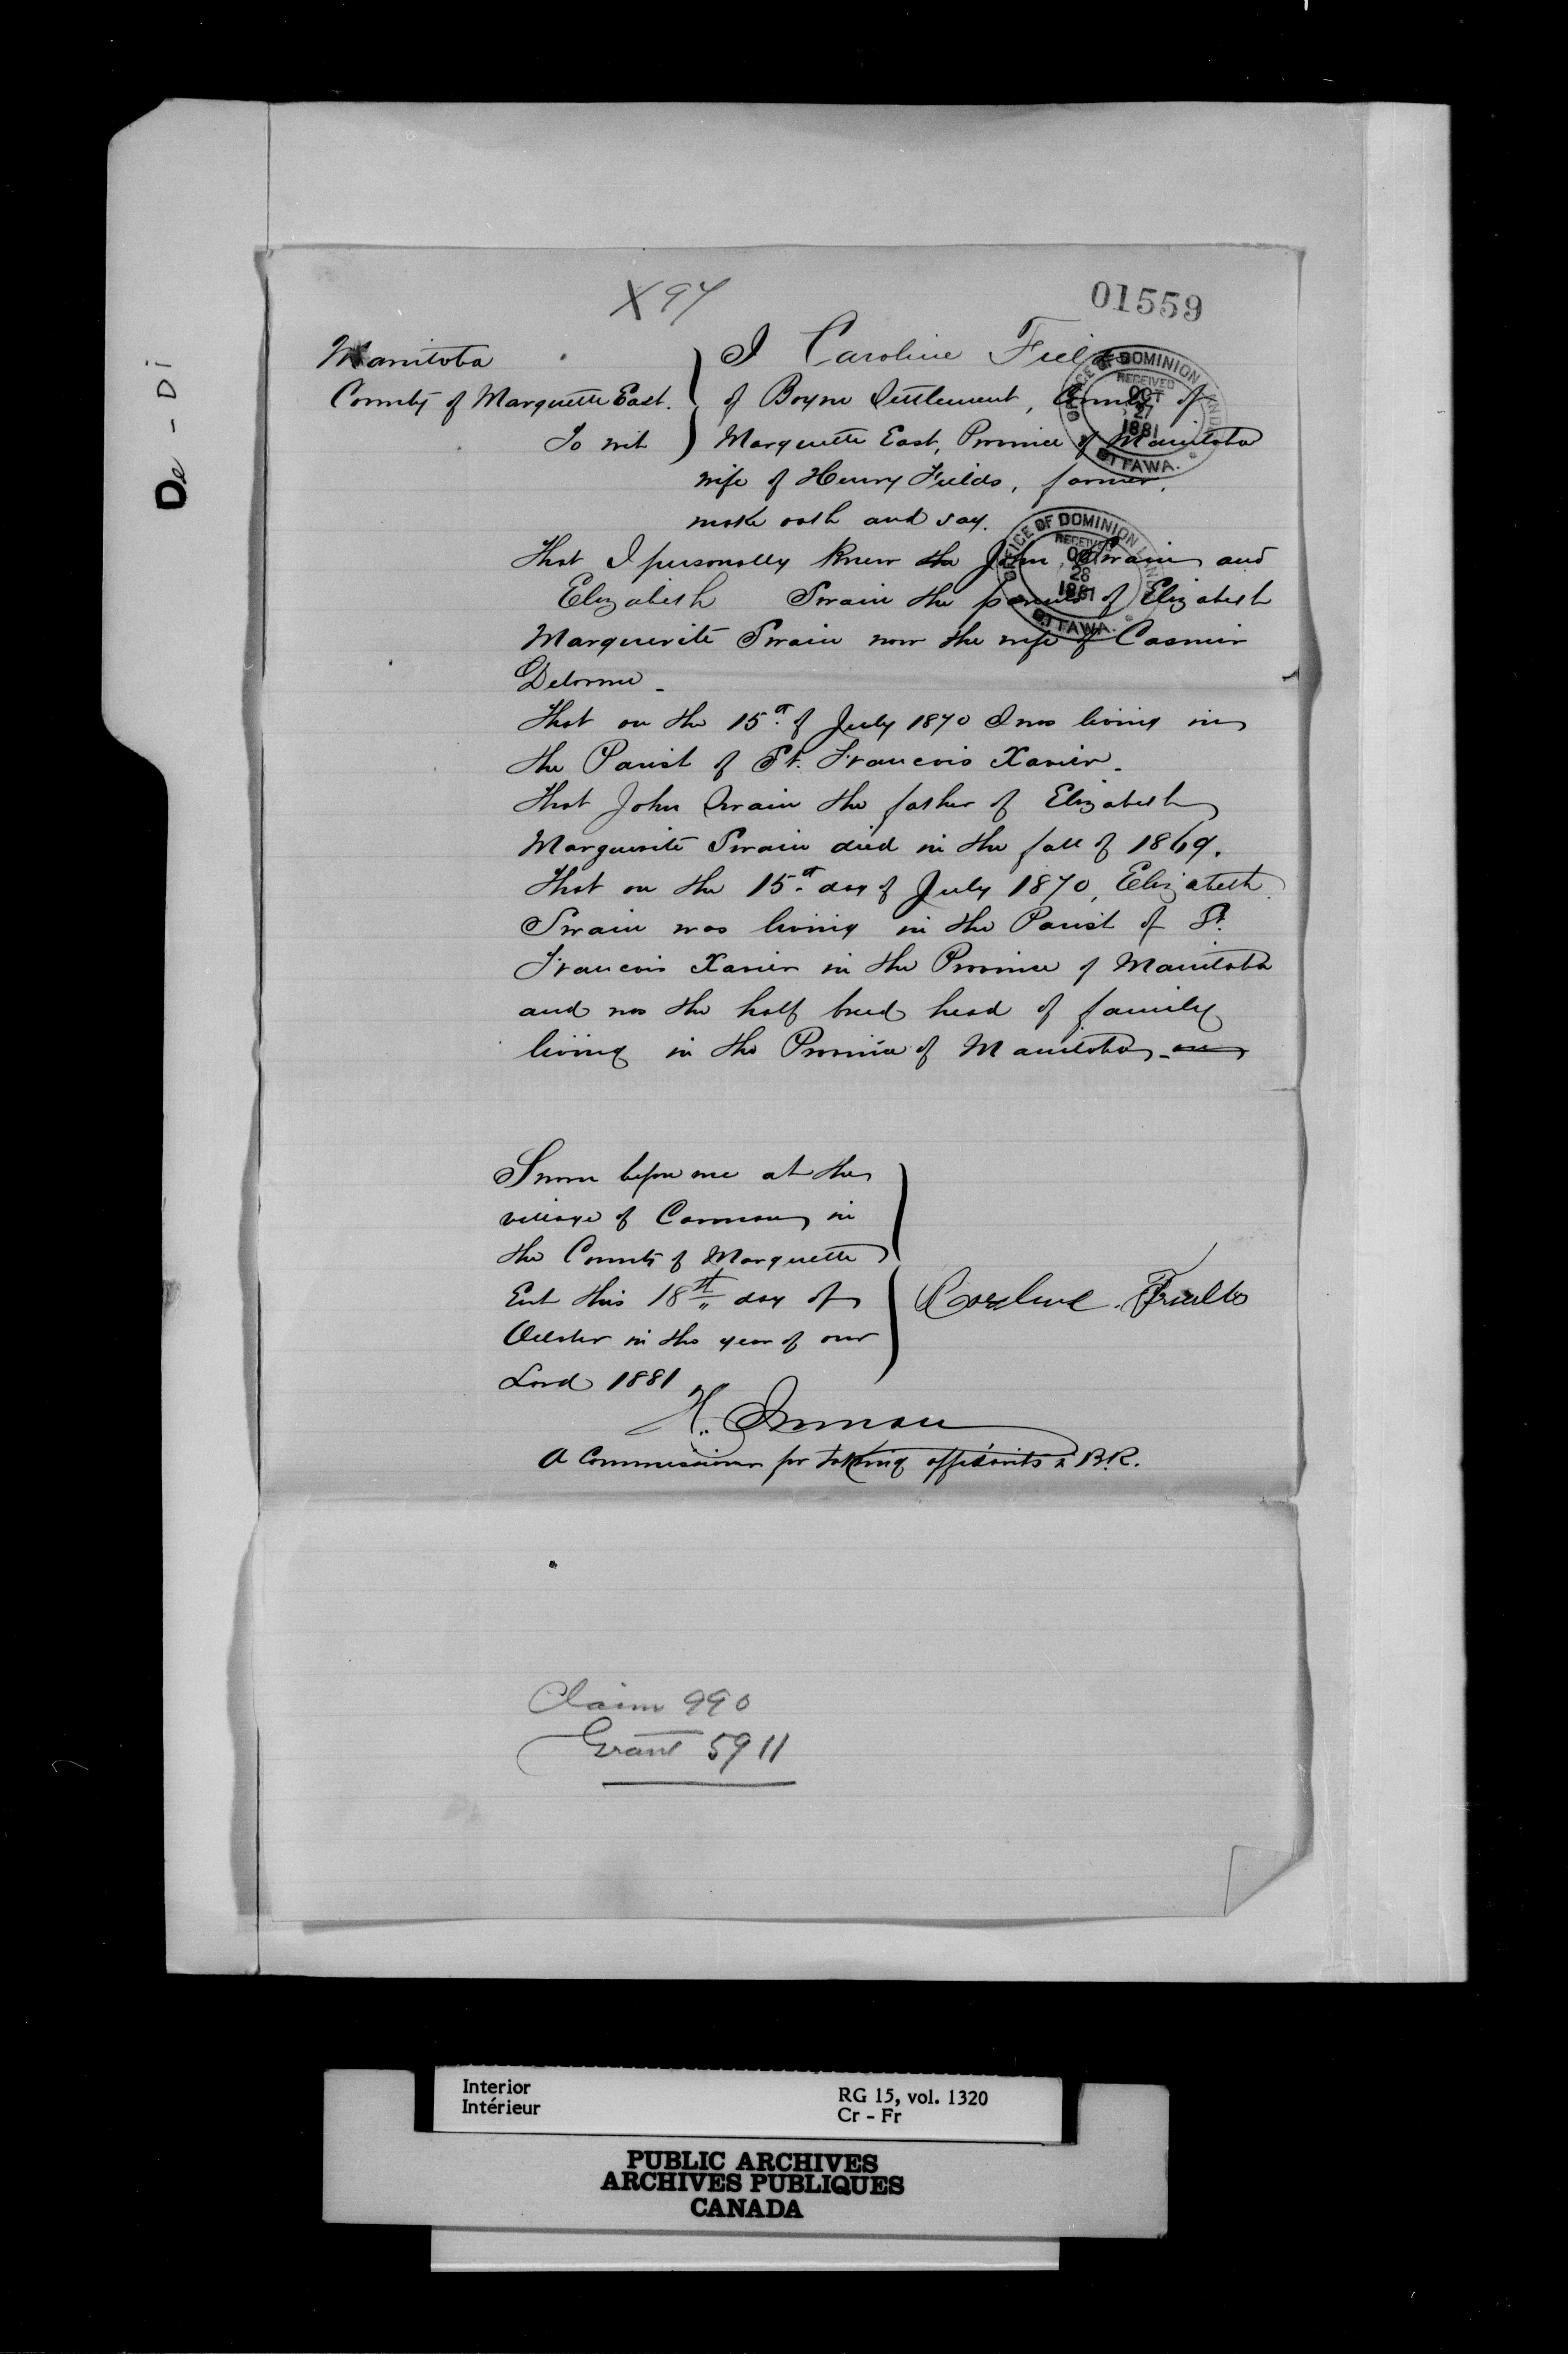 De - Di
X 97
01559
Manitoba
County of Marquette East.
To wit
I Caroline Fields
of Boyne Settlement, County of
Marquette East, Province of Manitoba
wife of Henry Fields, farmer,
make oath and say.
OFFICE OF DOMINION LANDS
RECEIVED
OCT
27
1881
OTTAWA.
That I personally knew the John Swain and
Elizabeth Swain the parents of Elizabeth
Marguerite Swain now the wife of Casmir
Delorme -
OFFICE OF DOMINION LANDS
RECEIVED
OCT
28
1881
OTTAWA.
That on the 15th of July 1870 I was living in
the Parish of St. Francois Xavier.
That John Swain the father of Elizabeth
Marguerite Swain died in the fall of 1869.
That on the 15th day of July 1870, Elizabeth
Swain was living in the Parish of St.
Francois Xavier in the Province of Manitoba
and was the half breed head of family
living in the Province of Manitoba -
Sworn before me at the
village of Carman in
the County of Marquette
East this 18th day of
October in the year of our
Lord 1881
Caroline Fields
H. Inman
A Commissioner for taking affidavits in B.R.
Claim 990
Grant 5911
Interior
Intérieur
RG 15, vol. 1320
Cr - Fr
PUBLIC ARCHIVES
ARCHIVES PUBLIQUES
CANADA